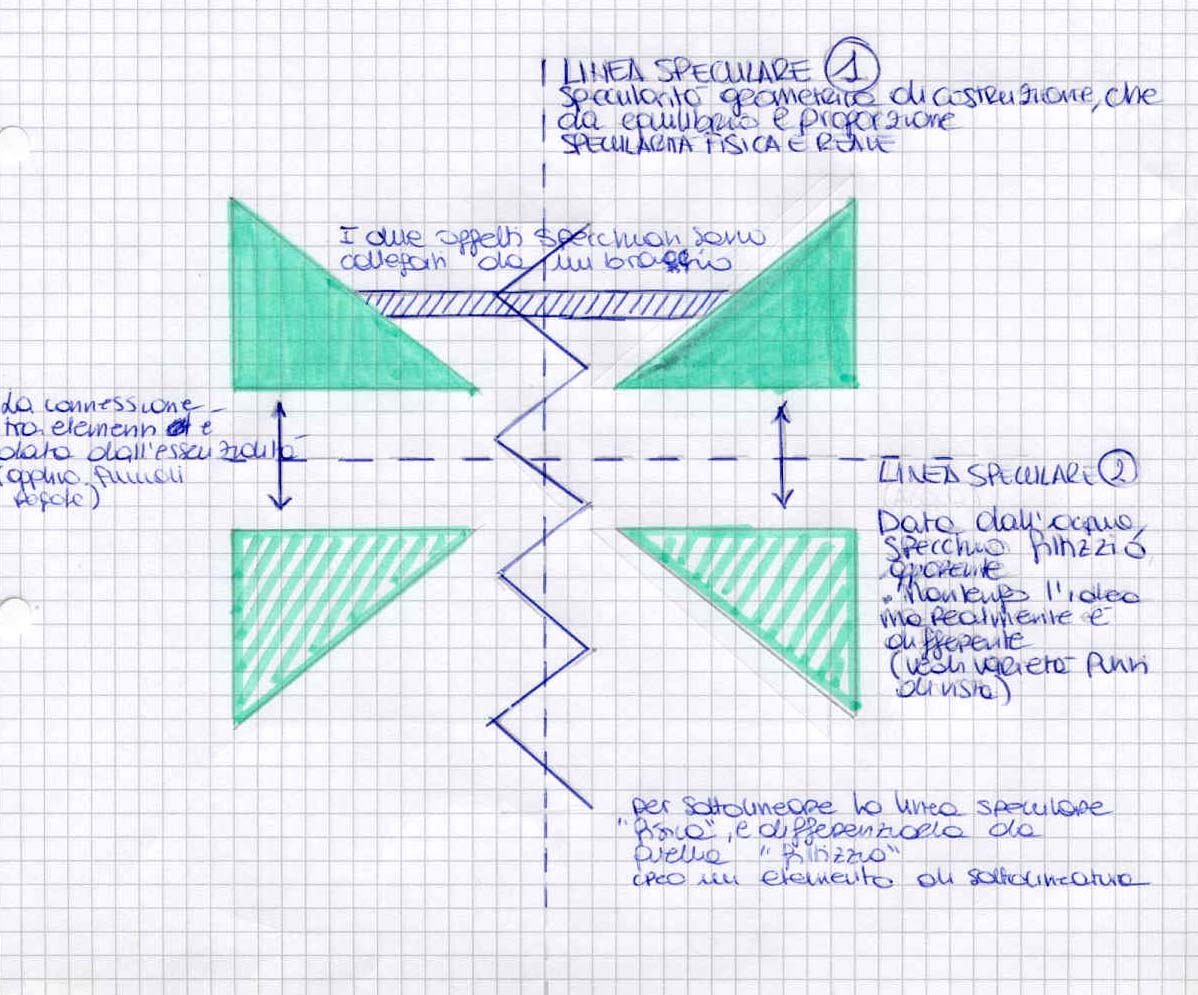 LINEA SPECULARE 1
Specularità geometrica di costruzione, che
da equilibrio e proporzione
SPECULARITÀ FISICA E REALE
I due oggetti specchiati sono
collegati da un braccio
La connessione
tra elementi è
data dall'essenzialità
(oppure
LINEA SPECULARE 2
Dato dall'acqua,
specchio fittizzio
apparente
Mantengo l'idea
ma realmente è
differente
(vedi varietà punti
di vista)
per sottolineare la linea speculare
"fisica", e differenziarla da
quella "fittizzia"
creo un elemento di sottolineatura